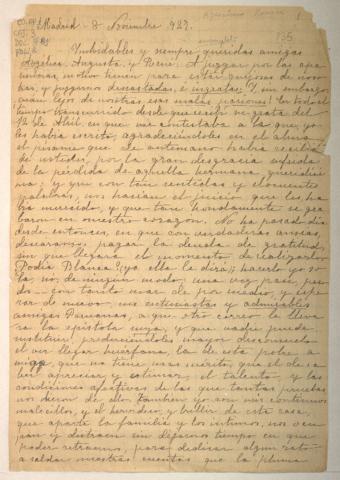 Madrid - 8 Noviembre 927.
Inolvidables y siempre queridas amigas
Angélica, Augusta, y Perú: A juzgar por las apa
riencias, motivo tienen para estar quejosas de noso
tras, y juzgarnos descastadas, e ingratas! Y, sin embargo,
cuan lejos de nosotras, esas malas pasiones! En todo el
tiempo transcurrido desde que recibí su grata del
12 de Abril en que me contestaba a la que yo
les había escrito, agradeciéndoles en el alma
el pésame que de antemano había recibido
de ustedes, por la gran desgracia sufrida
de la pérdida de aquella hermana queridísi
ma; y que con tan sentidas y elocuentes
palabras, nos hacían el juicio que les ha
bía merecido, y que tan hondamente se gra
baron en nuestro corazón. No ha pasado día
desde entonces, en que con verdaderas ansias,
deseáramos, pagar la deuda de gratitud,
sin que llegara el momento de realizarlo.
Podía Blanca? (ya ella le dirá); hacerlo yo so
la, no, de ningún modo, una vez para, pen
sar con tanto mar de por medio y espe
rar de nuevo, mis entusiastas y admirables
amigas Peruanas, a que otro correo le lleva
ra la epístola suya, y que nadie puede
sustituir, produciéndoles mayor desconsuelo
el ver llegar huérfana, la de esta pobre a
miga, que no tiene más mérito, que el de sa
ber apreciar y estimar, el talento, y las
condiciones afectivas de las que tantas pruebas
nos dieron de ello. También yo con mis continuos
malecillos, y el hervidero, y bullir de esta casa,
que aparte la familia y los íntimos, nos ocu
pan y distraen sin dejarnos tiempo en que
poder retraernos, para dedicar algún rato
a saldar nuestras cuentas que la pluma